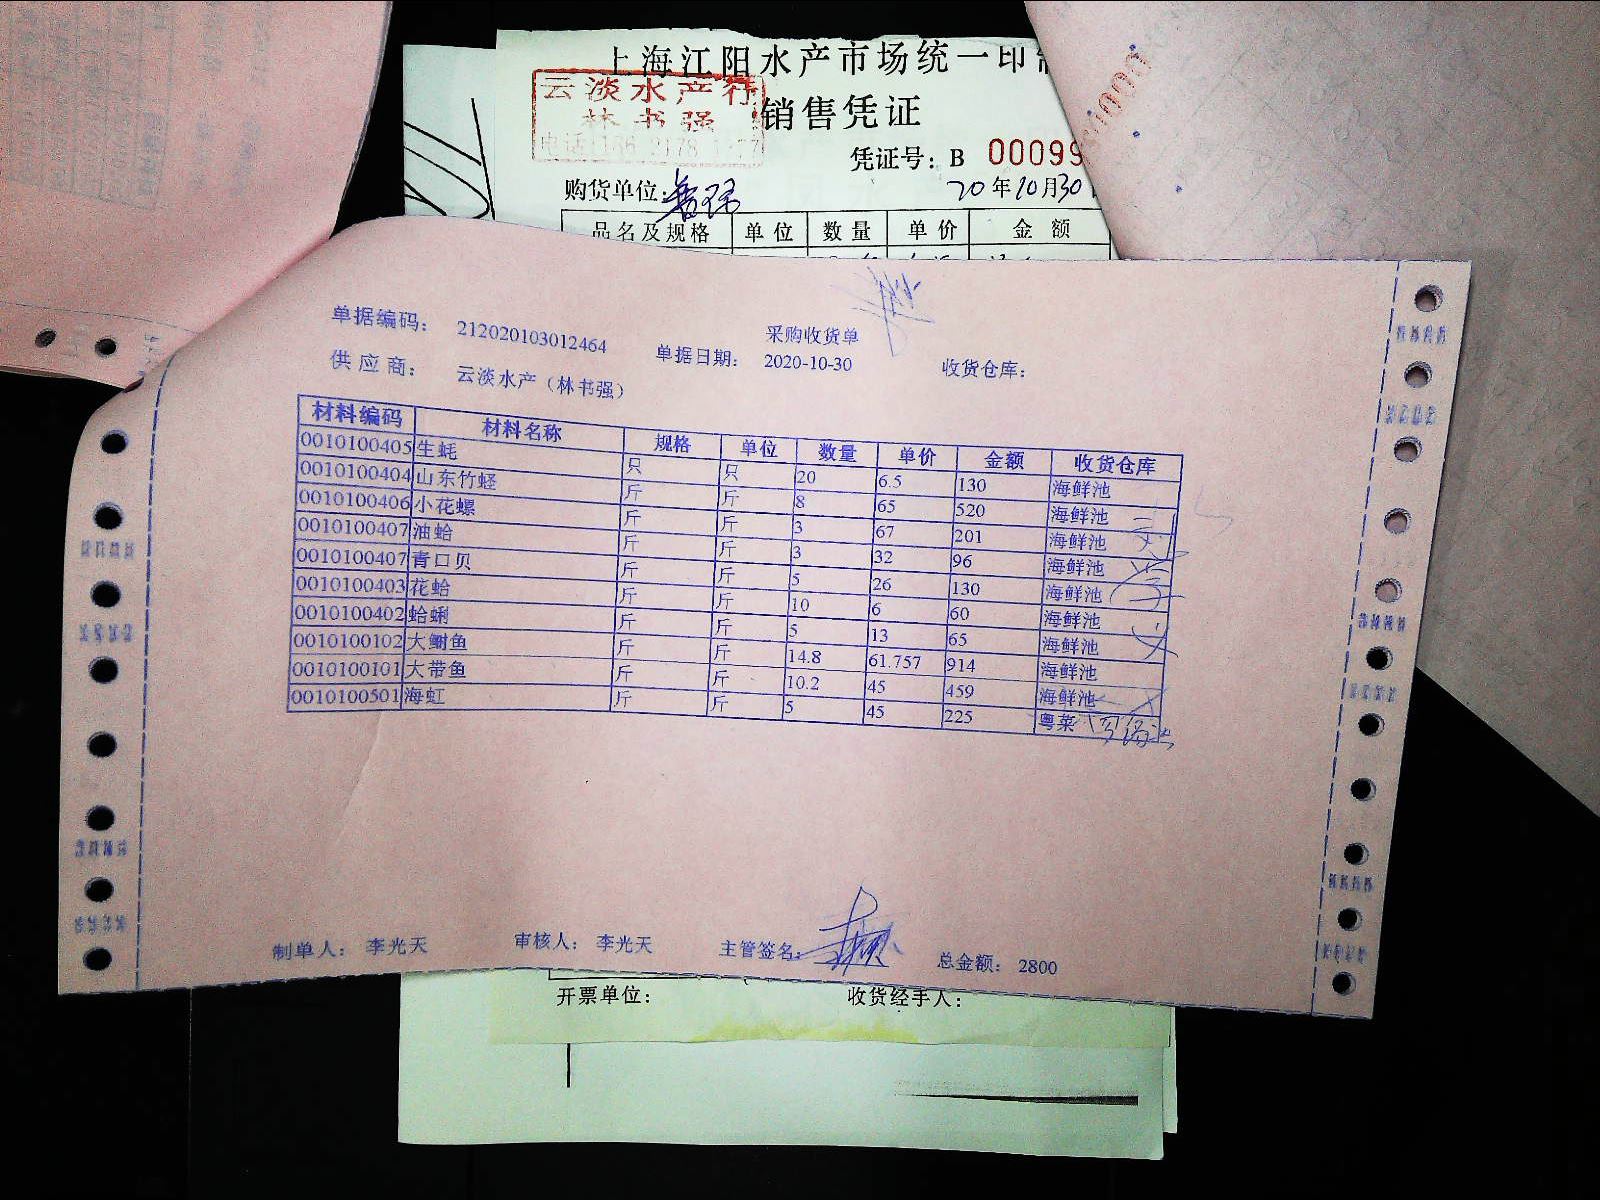 上海江阳水产市场统一印
云淡水产行
林书强
销售凭证
凭证号：B 00099
购货单位：
20年10月30
品名及规格 单位 数量 单价 金额
采购收货单
单据编码： 212020103012464 单据日期： 2020-10-30 收货仓库：
供应商： 云淡水产（林书强）
材料编码 材料名称 规格 单位 数量 单价 金额 收货仓库
0010100405 生蚝 只 只 20 6.5 130 海鲜池
0010100404 山东竹蛏 斤 斤 8 65 520 海鲜池
0010100406 小花螺 斤 斤 3 67 201 海鲜池
0010100407 油蛤 斤 斤 3 32 96 海鲜池
0010100407 青口贝 斤 斤 5 26 130 海鲜池
0010100403 花蛤 斤 斤 10 6 60 海鲜池
0010100402 蛤蜊 斤 斤 5 13 65 海鲜池
0010100102 大鲥鱼 斤 斤 14.8 61.757 914 海鲜池
0010100101 大带鱼 斤 斤 10.2 45 459 海鲜池
0010100501 海虹 斤 斤 5 45 225 粤菜
制单人： 李光天 审核人： 李光天 主管签名： 总金额： 2800
开票单位： 收货经手人：